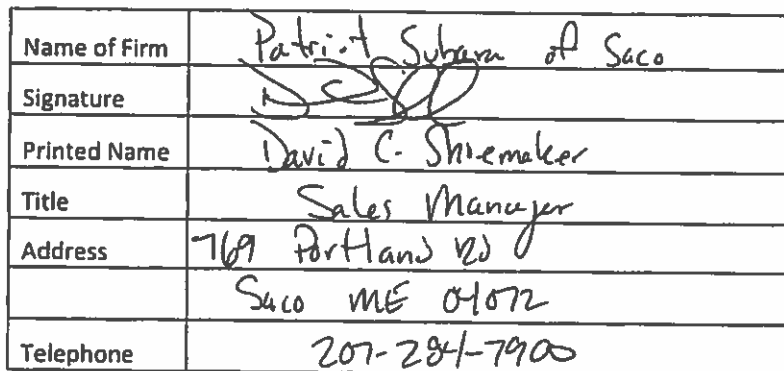 Name of Firm Patriot Subaru of Saco
Signature
Printed Name David C. Shoemaker
Title Sales Manager
Address 769 Portland Rd
Saco ME 04072
Telephone 207-284-7900